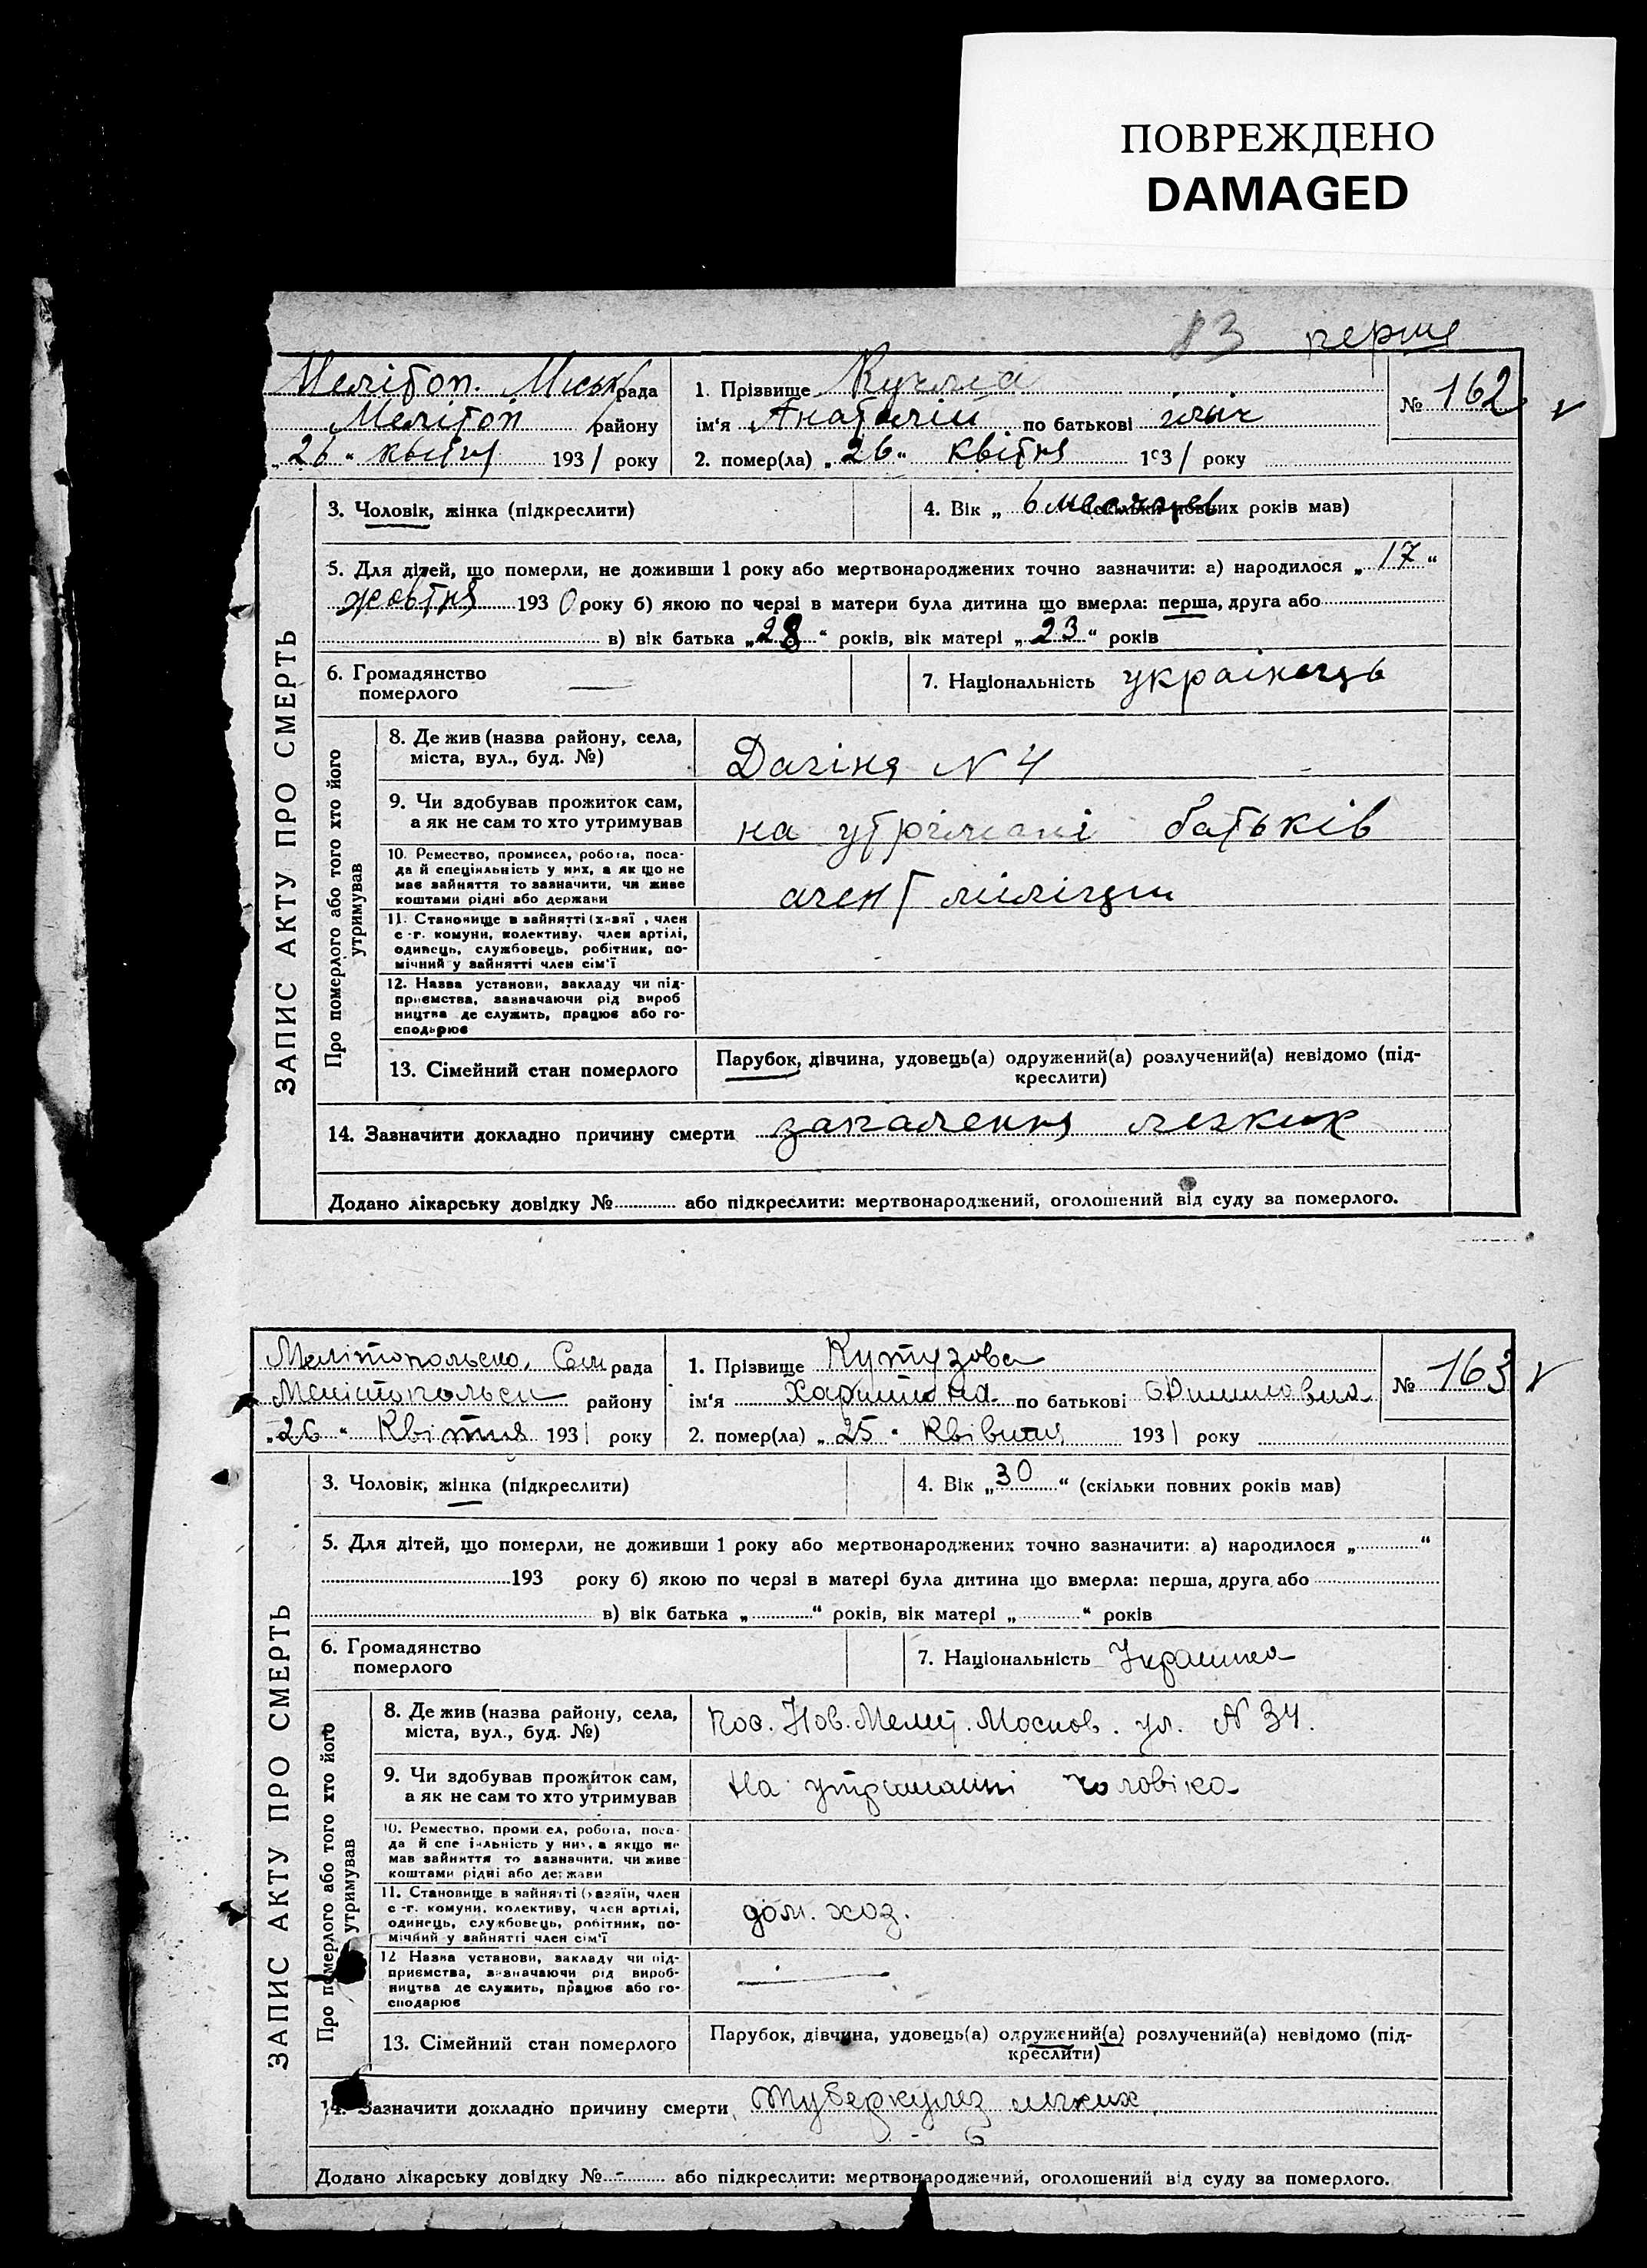 ПОВРЕЖДЕНО
DAMAGED
83 перша
Меліτоп. Міськ рада
Меліτоп району
„26“ квітня 1931 року
1. Прізвище Кучма
ім'я Анатолій по батькові Ілліч
№ 162
2. помер(ла) „26“ квітня 1931 року
ЗАПИС АКТУ ПРО СМЕРТЬ
3. Чоловік, жінка (підкреслити)
4. Вік „ 6 месяцев (скільки повних років мав)
5. Для дітей, що померли, не доживши 1 року або мертвонароджених точно зазначити: а) народилося „17“
жовтня 1930 року б) якою по черзі в матери була дитина що вмерла: перша, друга або
в) вік батька „28“ років, вік матері „23“ років
6. Громадянство
померлого —
7. Національність українець
Про померлого або того хто його
утримував
8. Де жив (назва району, села,
міста, вул., буд. №)
N 4
9. Чи здобував прожиток сам,
а як не сам то хто утримував
на утрімані батьків
10. Ремество, промисел, робота, поса-
да й спеціяльність у них, а як що не
має зайняття то зазначити, чи живе
коштами рідні або держави
агент міліции
11. Становище в зайнятті (х-зяї , член
с -г. комуни, колективу, член артілі,
одинець, службовець, робітник, по-
мічний у зайнятті член сім'ї
12. Назва установи, закладу чи під-
приємства, зазначаючи рід вироб
ництва де служить, працює або го-
сподарює
13. Сімейний стан померлого
Парубок, дівчина, удовець(а) одружений(а) розлучений(а) невідомо (під-
креслити)
14. Зазначити докладно причину смерти запалення легких
Додано лікарську довідку № або підкреслити: мертвонароджений, оголошений від суду за померлого.
Мелітопольско. Сел рада
Мелітопольск району
„26“ Квітня 1931 року
1. Прізвище Кутузова
ім'я Харитина по батькові
№ 163
2. помер(ла) „25“ Квівтня 1931 року
ЗАПИС АКТУ ПРО СМЕРТЬ
3. Чоловік, жінка (підкреслити)
4. Вік „30“ (скільки повних років мав)
5. Для дітей, що померли, не доживши 1 року або мертвонароджених точно зазначити: а) народилося „ “
193 року б) якою по черзі в матері була дитина що вмерла: перша, друга або
в) вік батька „ “ років, вік матері „ “ років
6. Громадянство
померлого
7. Національність Українка
Про померлого або того хто його
утримував
8. Де жив (назва району, села,
міста, вул., буд. №)
пос. Нов. Меліт. Москов. ул. N 34.
9. Чи здобував прожиток сам,
а як не сам то хто утримував
На утриманні чоловіка
10. Ремество, проми ел, робота, поса-
да й спе іяльність у них, а якщо не
мав зайняття то зазначити, чи живе
коштами рідні або держави
11. Становище в зайнятті (хазяїн, член
с -г. комуни, колективу, член артілі,
одинець, службовець, робітник, по-
мічний у зайнятті член сім'ї
дом. хоз.
12 Назва установи, закладу чи під-
приємства, зазначаючи рід вироб-
ництва де служить, працює або го-
сподарює
—
13. Сімейний стан померлого
Парубок, дівчина, удовець(а) одружений(а) розлучений(а) невідомо (під-
креслити)
14. Зазначити докладно причину смерти туберкулез легких
Додано лікарську довідку № - або підкреслити: мертвонароджений, оголошений від суду за померлого.